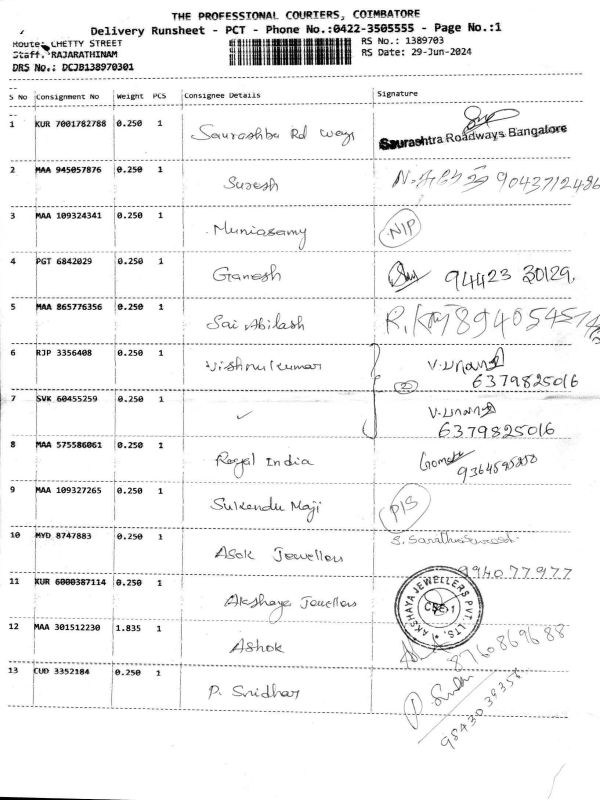 THE PROFESSIONAL COURIERS, COIMBATORE
Delivery Runsheet - PCT - Phone No.:0422-3505555 - Page No.:1
Route: CHETTY STREET
RS No.: 1389703
Staff: RAJARATHINAM
RS Date: 29-Jun-2024
DRS No.: DCJB138970301
S No Consignment No Weight PCS Consignee Details Signature
1 KUR 7001782788 0.250 1 Saurashtra Rd ways Saurashtra Roadways Bangalore
2 MAA 945057876 0.250 1 Suresh 9043712486
3 MAA 109324341 0.250 1 Muniasamy NIP
4 PGT 6842029 0.250 1 Ganesh 94423 30129
5 MAA 865776356 0.250 1 Sai Abilash
6 RJP 3356408 0.250 1 Vishnukumar 2
6379825016
7 SVK 60455259 0.250 1 ✓
6379825016
8 MAA 575586061 0.250 1 Royal India
9 MAA 109327265 0.250 1 Sukendu Maji P/S
10 MYD 8747883 0.250 1 Asok Jewellers
994077977
11 KUR 6000387114 0.250 1 Akshaya Jewellers AKSHAYA JEWELLERS PVT. LTD. CBE-1
12 MAA 301512230 1.835 1 Ashok 8760869688
13 CUD 3352184 0.250 1 P. Sridhar
9843039358